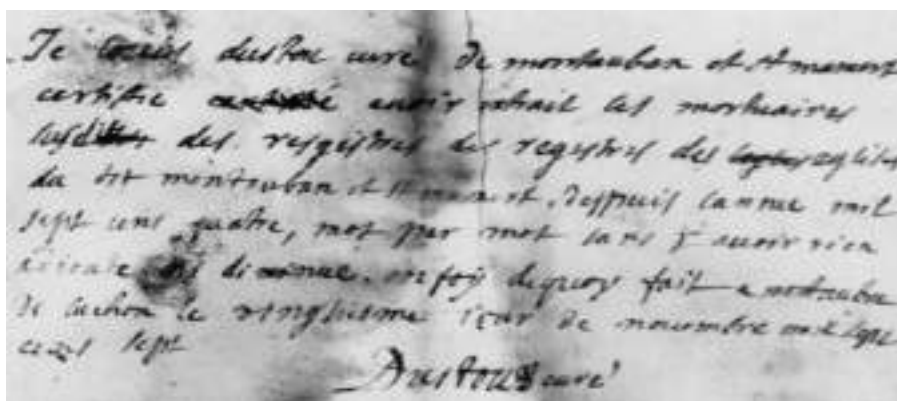 Je Louis dustou curé de montauban et st mamert
certifie avoir extrait les mortuaires
susdits des resgistres des registres des eglises
du dit montauban et st mamert, despuis lannee mil
sept cens quatre, mot par mot sans y avoir rien
aiouté ni diminué. en foy dequoy fait a montauban
de luchon le vinghiesme iour de novembre mil sept
cens sept
Dustou curé